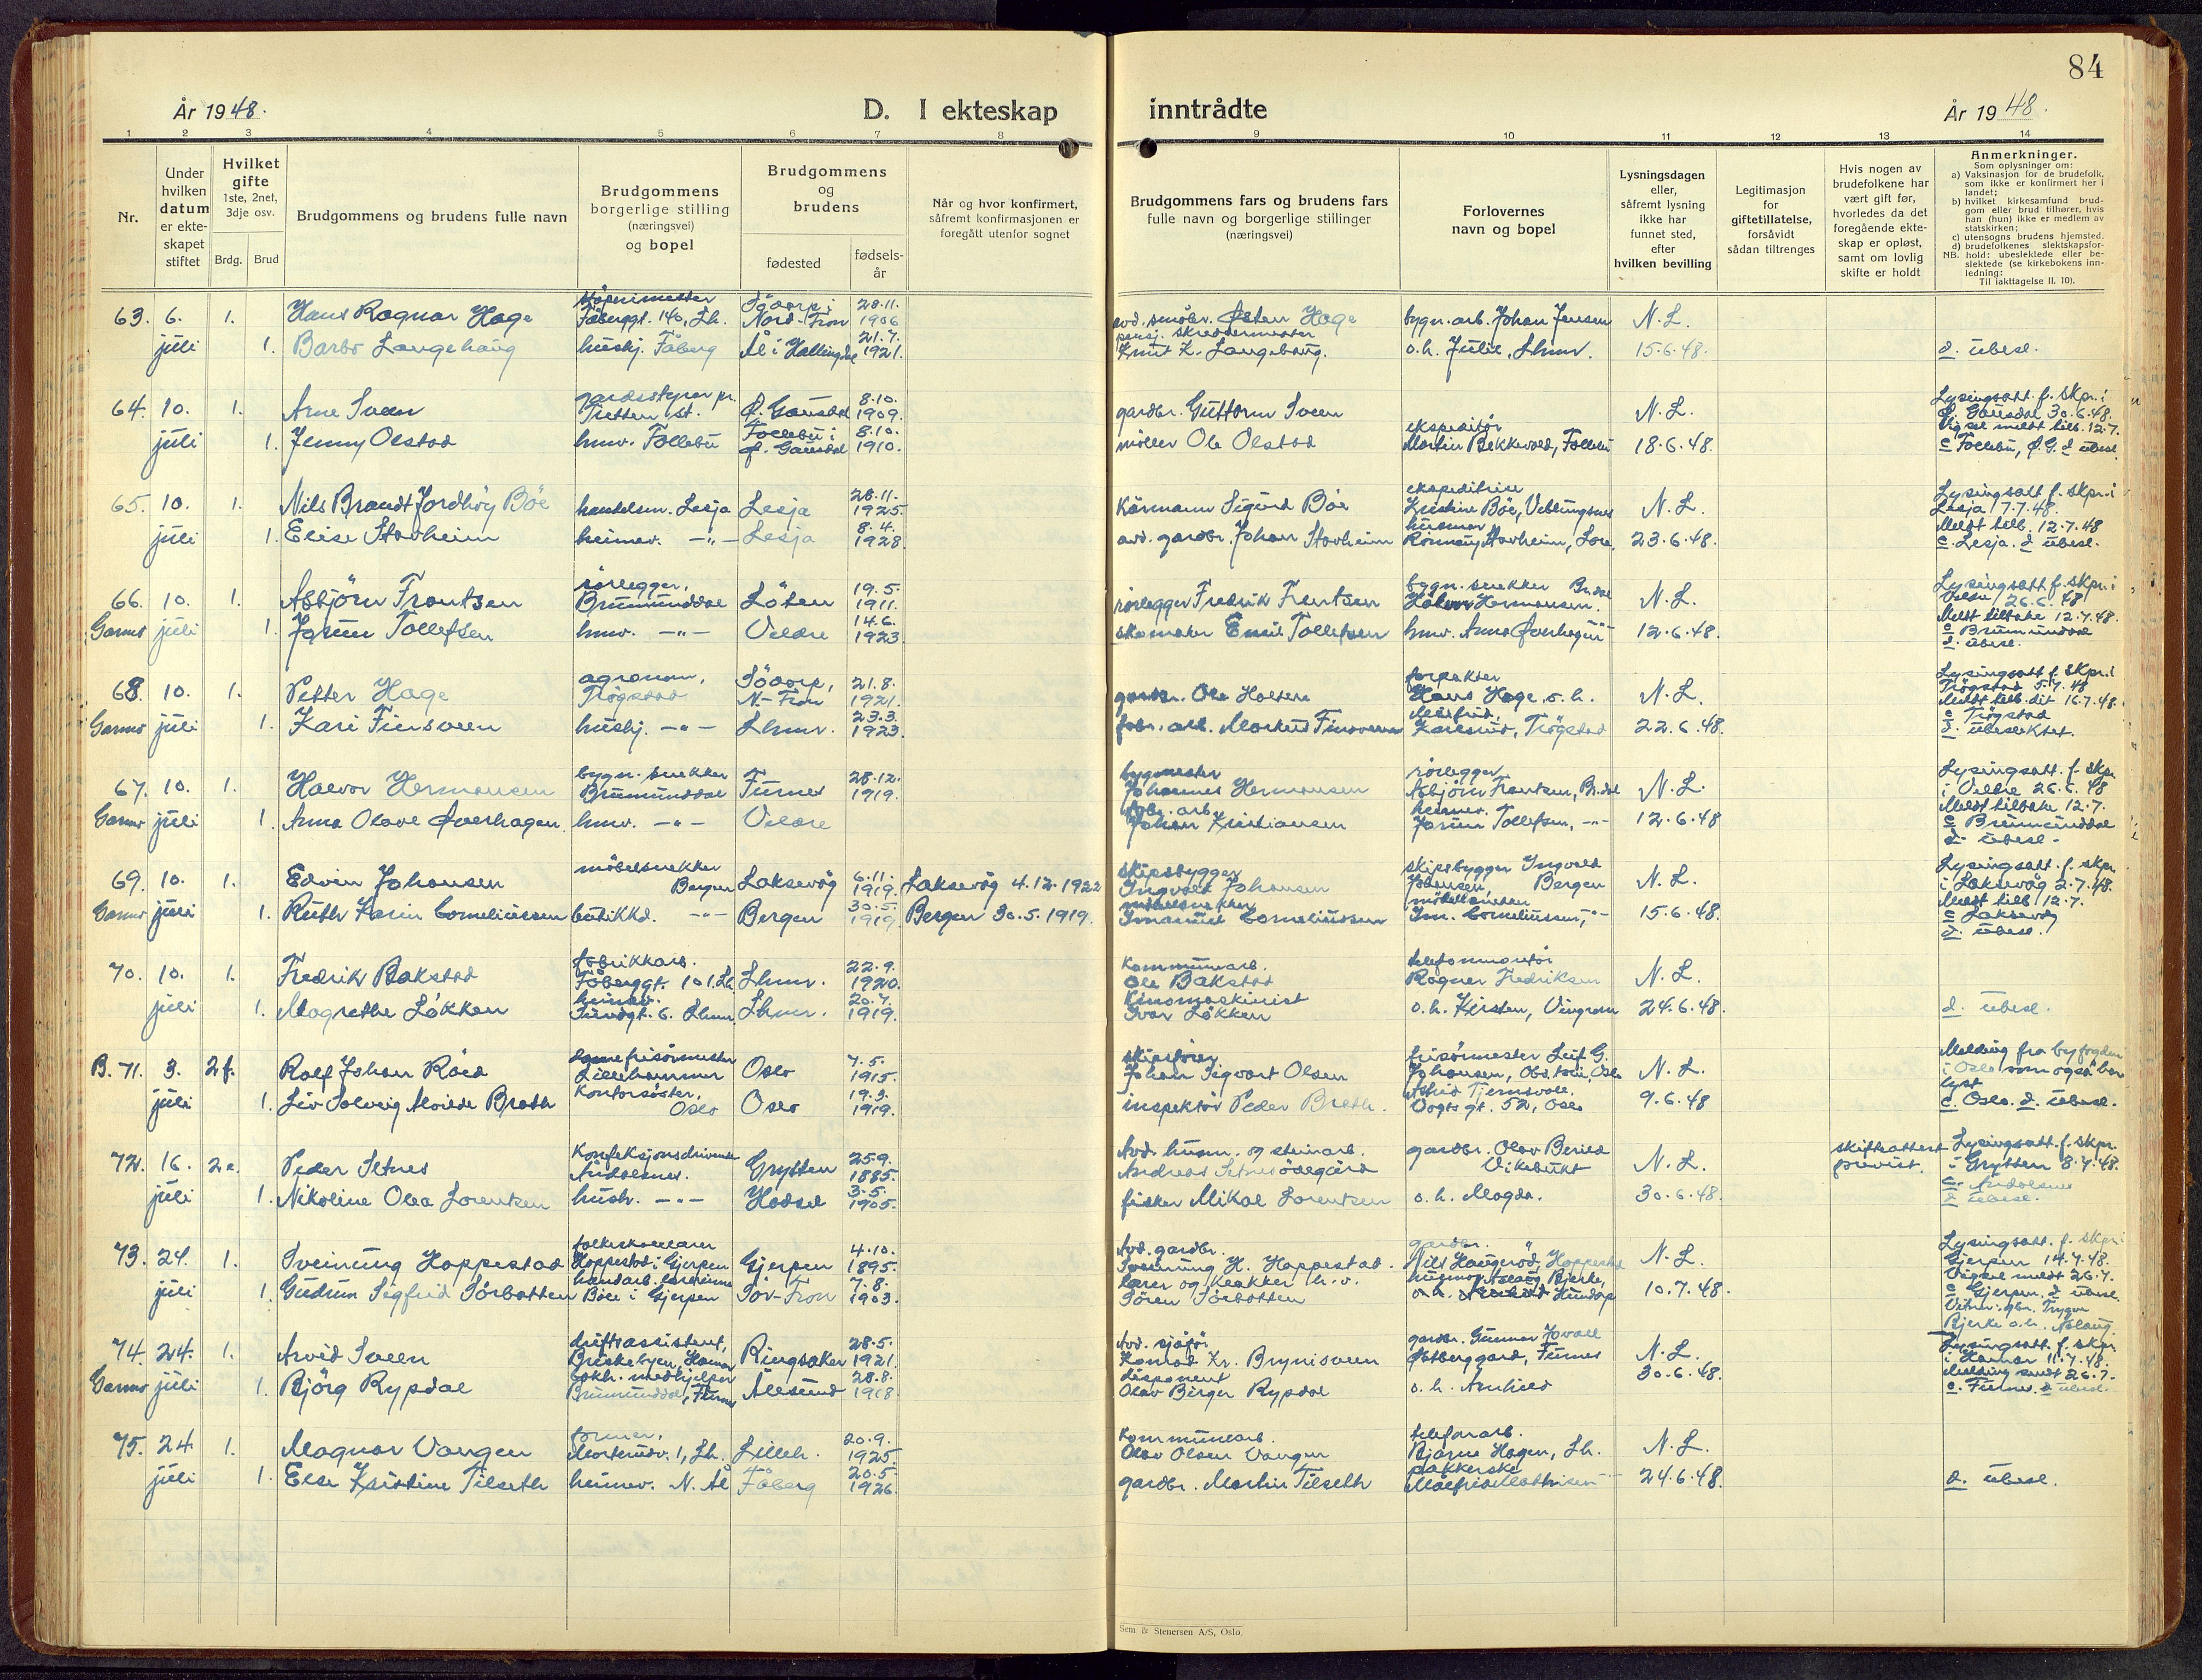 84
År 1948.
D. I ekteskap inntrådte
År 1948.
1 2 3 4 5 6 7 8 9 10 11 12 13 14
Nr.
Under
hvilken
datum
er ekte-
skapet
stiftet
Hvilket
gifte
1ste, 2net,
3dje osv.
Brdg. Brud
Brudgommens og brudens fulle navn
Brudgommens
borgerlige stilling
(næringsvei)
og bopel
Brudgommens
og
brudens
fødested
fødsels-
år
Når og hvor konfirmert,
såfremt konfirmasjonen er
foregått utenfor sognet
Brudgommens fars og brudens fars
fulle navn og borgerlige stillinger
(næringsvei)
Forlovernes
navn og bopel
Lysningsdagen
eller,
såfremt lysning
ikke har
funnet sted,
efter
hvilken bevilling
Legitimasjon
for
giftetillatelse,
forsåvidt
sådan tiltrenges
Hvis nogen av
brudefolkene har
vært gift før,
hvorledes da det
foregående ekte-
skap er opløst,
samt om lovlig
skifte er holdt
Anmerkninger.
Som oplysninger om:
a) Vaksinasjon for de brudefolk,
som ikke er konfirmert her i
landet;
b) hvilket kirkesamfund brud-
gom eller brud tilhører, hvis
han (hun) ikke er medlem av
statskirken;
c) utensogns brudens hjemsted.
d) brudefolkenes slektskapsfor-
NB. hold: ubeslektede eller be-
slektede (se kirkebokens inn-
ledning:
Til iakttagelse II. 10).
63. 6. 1. Hans Ragnar Hage Fåberggt. 140, Lh. Södorp i Nord-Fron 28.11. 1906 Østen Hage bygn. arb. Johan Jensen N.L.
juli 1. Barbo Langehaug hushj. Fåberg Ål i Hallingdal 21.7. 1921. pensj. skreddermester Knut K. Langehaug. o.h. Julie, Lhmr. 15.6.48. d. ubesl.
64. 10. 1. Arne Sveen gardsstyrer pr. Tretten st. Ø. Gausdal 8.10. 1909. gardbr. Guttorm Sveen N.L. Lysingsatt. f. skpr. i Ø. Gausdal 30.6.48.
juli 1. Jenny Olstad hmv. Follebu Follebu i Ø. Gausdal 8.10. 1910. møller Ole Olstad ekspeditör Martin Bekkevold, Follebu 18.6.48. Vigsel meldt tilb. 12.7. c Follebu, Ø.G. d ubesl.
65. 10. 1. Nils Brandt Jordhöy Böe handelsm. Lesja Lesja 28.11. 1925 Sigurd Böe ekspeditrise Kristine Böe, Veblungsnes N.L. Lysingsatt f. skpr. i Lesja 7.7.48.
juli 1. Elise Stavheim heimev. -"- Lesja 8.4. 1928. avd. gardbr. Johan Stavheim husmor Rönnaug Stavheim, Lora. 23.6.48. Meldt tilb. 12.7.48 c. Lesja. d ubesl.
66. 10. 1. Asbjörn Frantsen rørlegger, Brumunddal Löten 19.5. 1911. rørlegger Fredrik Frantsen bygn. snekker Br.dal Halvor Hermansen. N.L. Lysingsatt f. skpr. i Veldre 26.6.48
Garmo juli 1. Jorun Tollefsen hmv. -"- Veldre 14.6. 1923 skomaker Emil Tollefsen hmv. Anna Øverhagen -"- 12.6.48. Meldt tilbake 12.7.48. c Brumunddal d. ubesl.
68. 10. 1. Petter Hage agronom, Trögstad Södorp, N-Fron 21.8. 1921. gardbr. Ole Holtene forpakter Hans Hage, o.h. N.L. Lysingsatt f. skpr. i Trögstad 5.7.48
Garmo juli 1. Kari Finsveen hushj. -"- Lhmr. 23.3. 1923. fabr. arb. Markus Finsveen Karlsrud, Trögstad 22.6.48. Meldt tilb. dit 16.7.48. c Trögstad d. ubeslektet.
67. 10. 1. Halvor Hermansen bygn. snekker Brumunddal Furnes 28.12. 1919. bygmester Johannes Hermansen rørlegger Asbjörn Frantsen, Br.dal N.L. Lysingsatt. f. skpr. i Veldre 26.6.48
Garmo juli 1. Anna Olave Øverhagen. hmv. -"- Veldre fabr. arb. Johan Kristiansen heimev. Jorun Tollefsen, -"- 12.6.48 Meldt tilbake 12.7. c Brumunddal d. ubesl.
69. 10. 1. Edvin Johansen möbelsnekker Bergen Laksevåg 6.11. 1919. Laksevåg 4.12.1922 skipsbygger Ingvald Johansen skipsbygger Ingvald Johansen, Bergen N.L. Lysingsatt. f. skpr. i Laksevåg 2.7.48.
Garmo juli 1. Ruth Karin Corneliussen butikkd. -"- Bergen 30.5. 1919. Bergen 30.5.1919. möbelsnekker Imanuel Corneliussen möbelsnekker Im. Corneliussen, -"- 15.6.48. Meldt tilb 12.7. c Laksevåg d. ubesl.
70. 10. 1. Fredrik Bakstad fabrikkarb. Fåberggt. 101. Lh. Lhmr. 22.9. 1920. Kommunearb. Ole Bakstad telefonmontör Ragnar Fredriksen N.L.
juli 1. Margrethe Løkken heimev. Lhmr. 20.7. 1919. Kinomaskinist Ivar Løkken o.h. Kirsten, Vingrom 24.6.48. d. ubesl.
B. 71. 3. 2f. Rolf Johan Röed damefrisörmester Lillehammer Oslo 7.5. 1915. skipsförer Johan Sigvart Olsen frisörmester Leif G. Johansen, Oslo N.L. Melding fra byfogden i Oslo som også har lyst
juli 1. Liv Solveig Brath Kontorsöster, Oslo Oslo 19.3. 1919. inspektör Peder Brath. Astrid Tjernsvoll. Vogts gt. 52, Oslo 9.6.48 c. Oslo. d. ubesl.
72. 16. 2e. Peder Setnes Åndalsnes. Grytten 25.9. 1885. Avd. husm. og steinarb. Andreas Setnesödegård gardbr. Olav Berild Vikebukt N.L. skifteattest prövist. Lysingsatt. f. skpr. i Grytten 8.7.48.
juli 1. Nikoline Olea Lorentzen hush. -"- Hadsel 3.5. 1905. fisker Mikal Lorentzen o.h. Magda. 30.6.48. c. Åndalsnes d ubesl.
73. 24. 1. Sveinung Hoppestad folkeskolelærer Hoppestad i Gjerpen Gjerpen 4.10. 1895. Avd. gardbr. Sveinung H. Hoppestad. gardbr. Nils Haugerød, Hoppestad N.L. Lysingsatt. f. skpr. i Gjerpen 14.7.48.
juli 1. Gudrun Sigfrid Sörbotten handarb. lærerinne Böle i Gjerpen Sör-Fron 7.8. 1903. lærer og klokker h.v. Sören Sörbotten husmor Aslaug Bjerke, 10.7.48. Vigsel meldt 26.7. c Gjerpen. d ubesl. Trygve Bjerke o.h. Aslaug
74. 24. 1. Arvid Sveen driftsassistent, Briskebyen, Hamar Ringsaker 28.5. 1921. Avd. sjåför Konrad Kr. Brynisveen gardbr. Gunnar Jovall Östberggard, Furnes N.L. Lysingsatt. f. skpr. i Hamar 11.7.48.
Garmo juli 1. Björg Rypdal bokh. medhjelper Brumunddal, Furnes Ålesund 28.8. 1918 disponent Olav Birger Rypdal o.h. Arnhild 30.6.48. Melding sendt 26.7. c. Furnes. d ubesl.
75. 24 1. Magnar Vangen former, Lh. Lilleh. 20.9. 1925. Kommunearb. Olav Olsen Vangen telefonarb. Bjarne Hagen, Lh. N.L.
juli 1. Else Kristine Tilseth heimev. N. Ål Fåberg 20.5. 1926. gardbr. Martin Tilseth pakkerske Målfrid Mathisen 24.6.48. d. ubesl.
Sem & Stenersen A/S, Oslo.